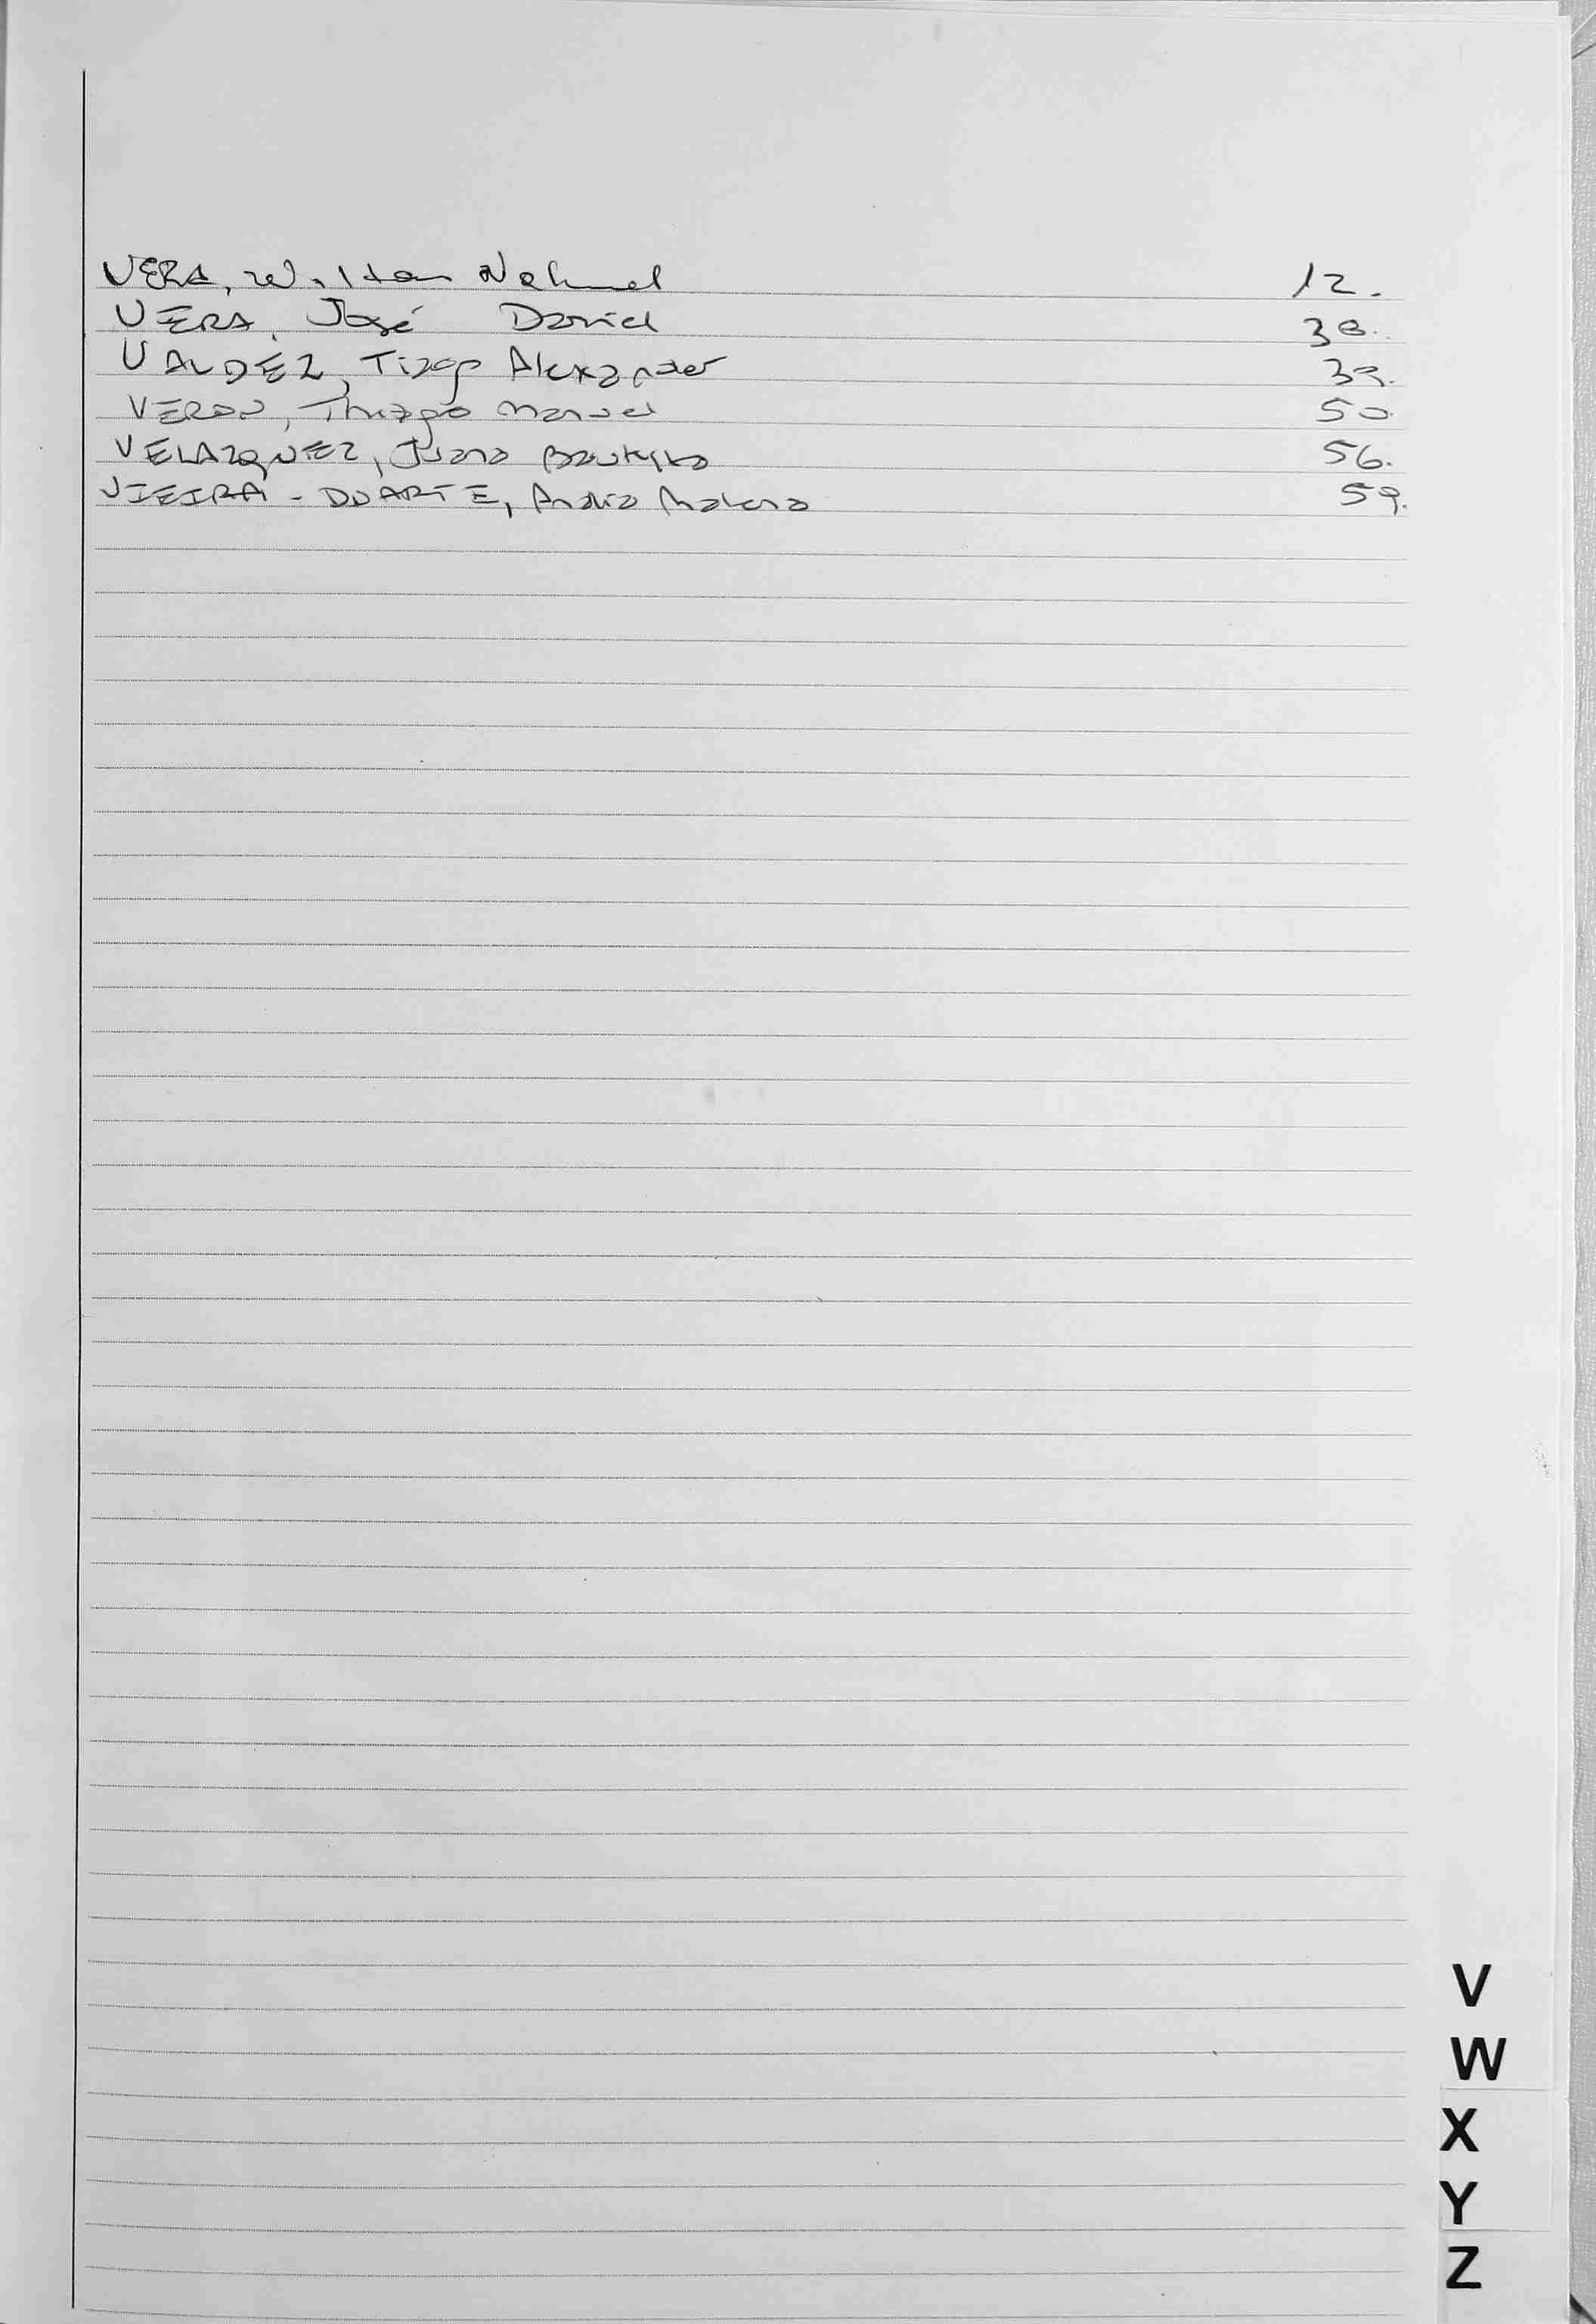 VERA, Wilton Nahuel 12.
VERA, José Daniel 38.
VALDEZ, Tiago Alexander 39.
VERON, Thiago Manuel 50.
VELAZQUEZ, Juana Bautista 56.
VIEIRA - DUARTE, Malena 59.
V
W
X
Y
Z